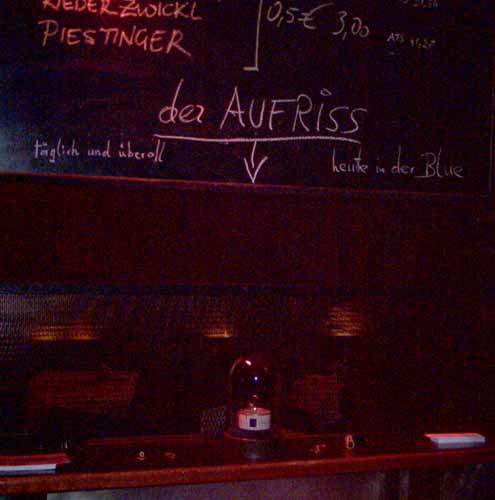 NIEDERZWICKL
PIESTINGER
0,5 € 3,00
der AUFRISS
täglich und überall
heute in der Blue